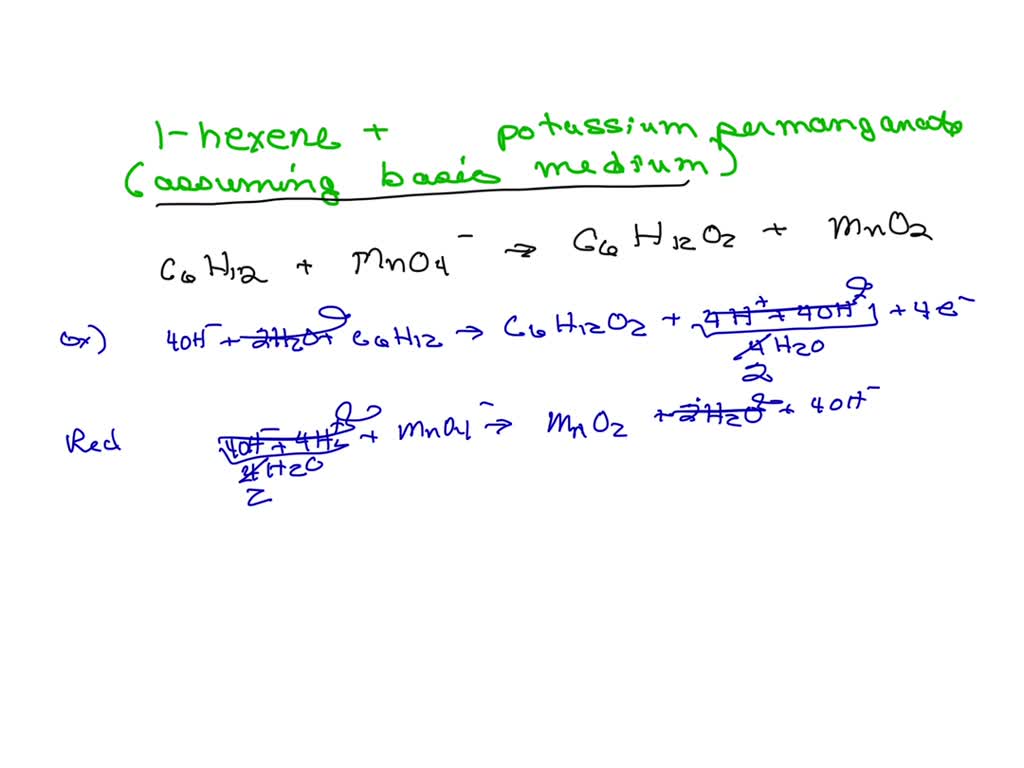 1-hexene + potassium permanganate
(assuming basic medium)
C6H12 + MnO4⁻ → C6H12O2 + MnO2
ox) 4OH⁻ + 2H2O + C6H12 → C6H12O2 + 4H⁺ + 4OH⁻ + 4e⁻
4H2O
2
Red 4OH⁻ + 4H⁺ + MnO4⁻ → MnO2 + 2H2O + 4OH⁻
4H2O
2